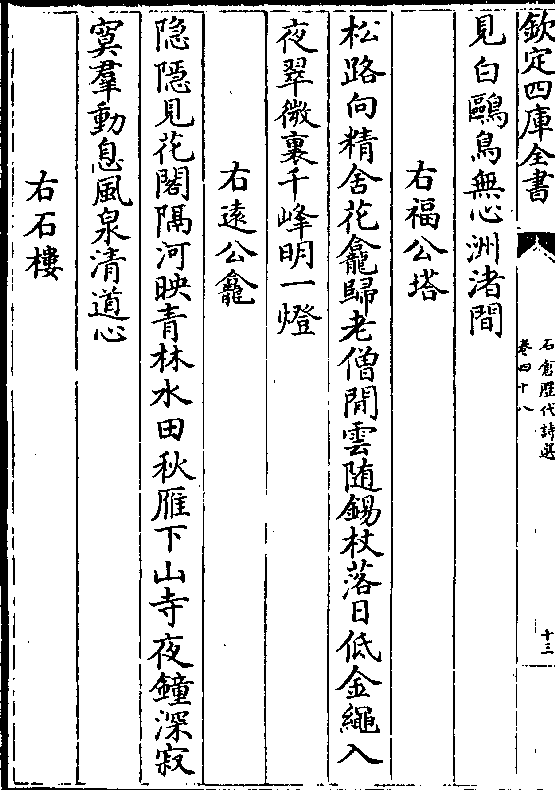 欽定四庫全書
石倉歷代詩選
卷四十八
十三
見白鷗鳥無心洲渚間
右福公塔
松路向精舍花龕歸老僧閒雲随錫杖落日低金繩入
夜翠微裏千峰明一燈
右遠公龕
隐隱見花閣隔河映青林水田秋雁下山寺夜鐘深寂
寞羣動息風泉清道心
右石樓